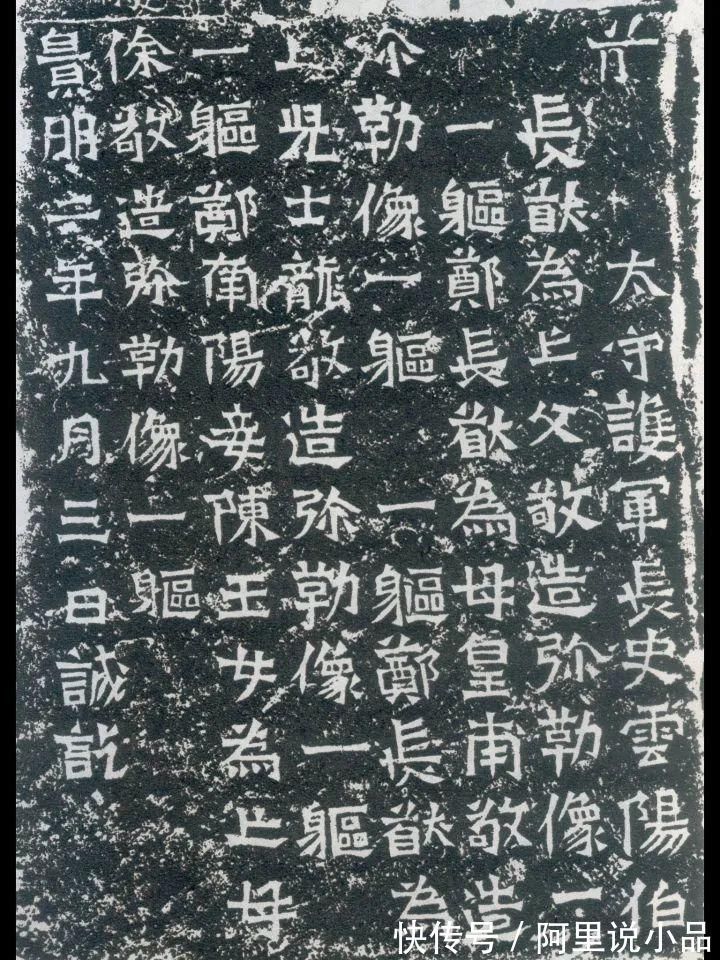 太守護軍長史雲陽伯
長猷為亡父敬造弥勒像一
一軀鄭長猷為母皇甫敬造
弥勒像一軀一軀鄭長猷為
亡兒士龍敬造弥勒像一軀
一軀鄭南陽妾陳王女為亡母
徐敬造弥勒像一軀
景明二年九月三日誡訖
快传号/阿里说小品